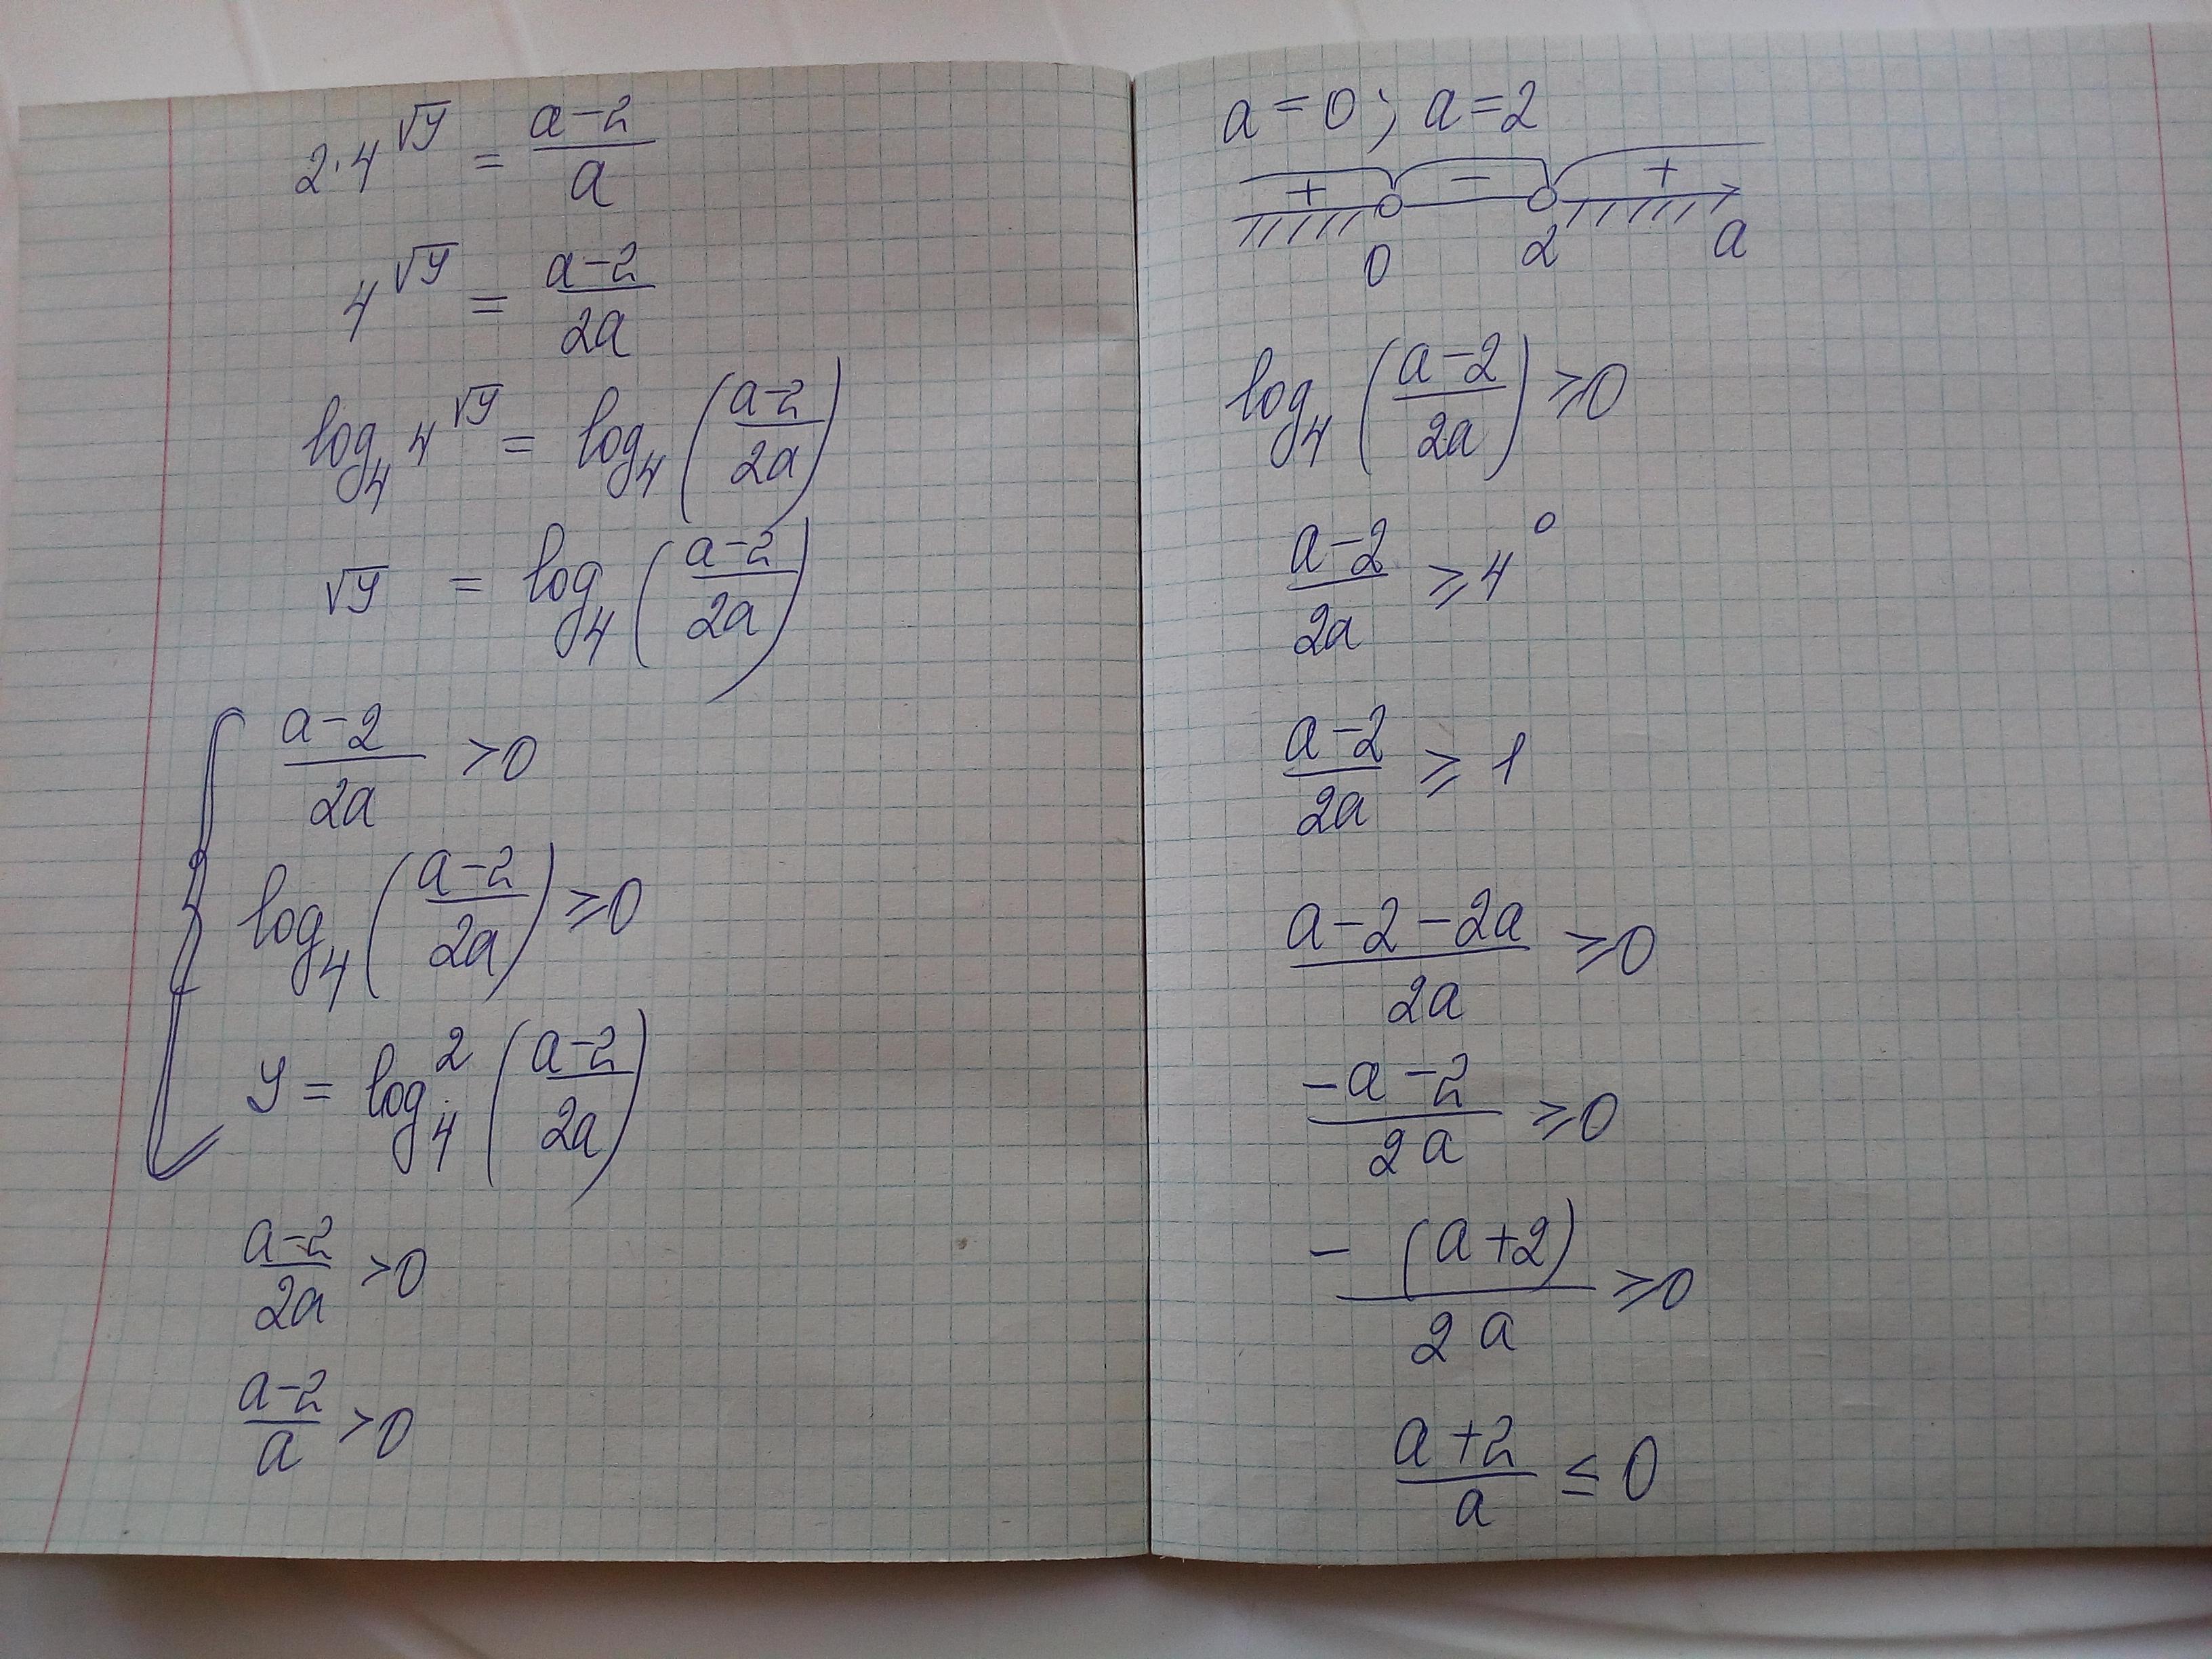 2·4^√y = (a-2)/a
4^√y = (a-2)/2a
log₄ 4^√y = log₄ ((a-2)/2a)
√y = log₄ ((a-2)/2a)
{ (a-2)/2a > 0
log₄ ((a-2)/2a) ⩾ 0
y = log₄² ((a-2)/2a)
(a-2)/2a > 0
(a-2)/a > 0
a = 0; a = 2
+ − +
0 2 a
log₄ ((a-2)/2a) ⩾ 0
(a-2)/2a ⩾ 4⁰
(a-2)/2a ⩾ 1
(a-2-2a)/2a ⩾ 0
(-a-2)/2a ⩾ 0
-(a+2)/2a ⩾ 0
(a+2)/a ≤ 0